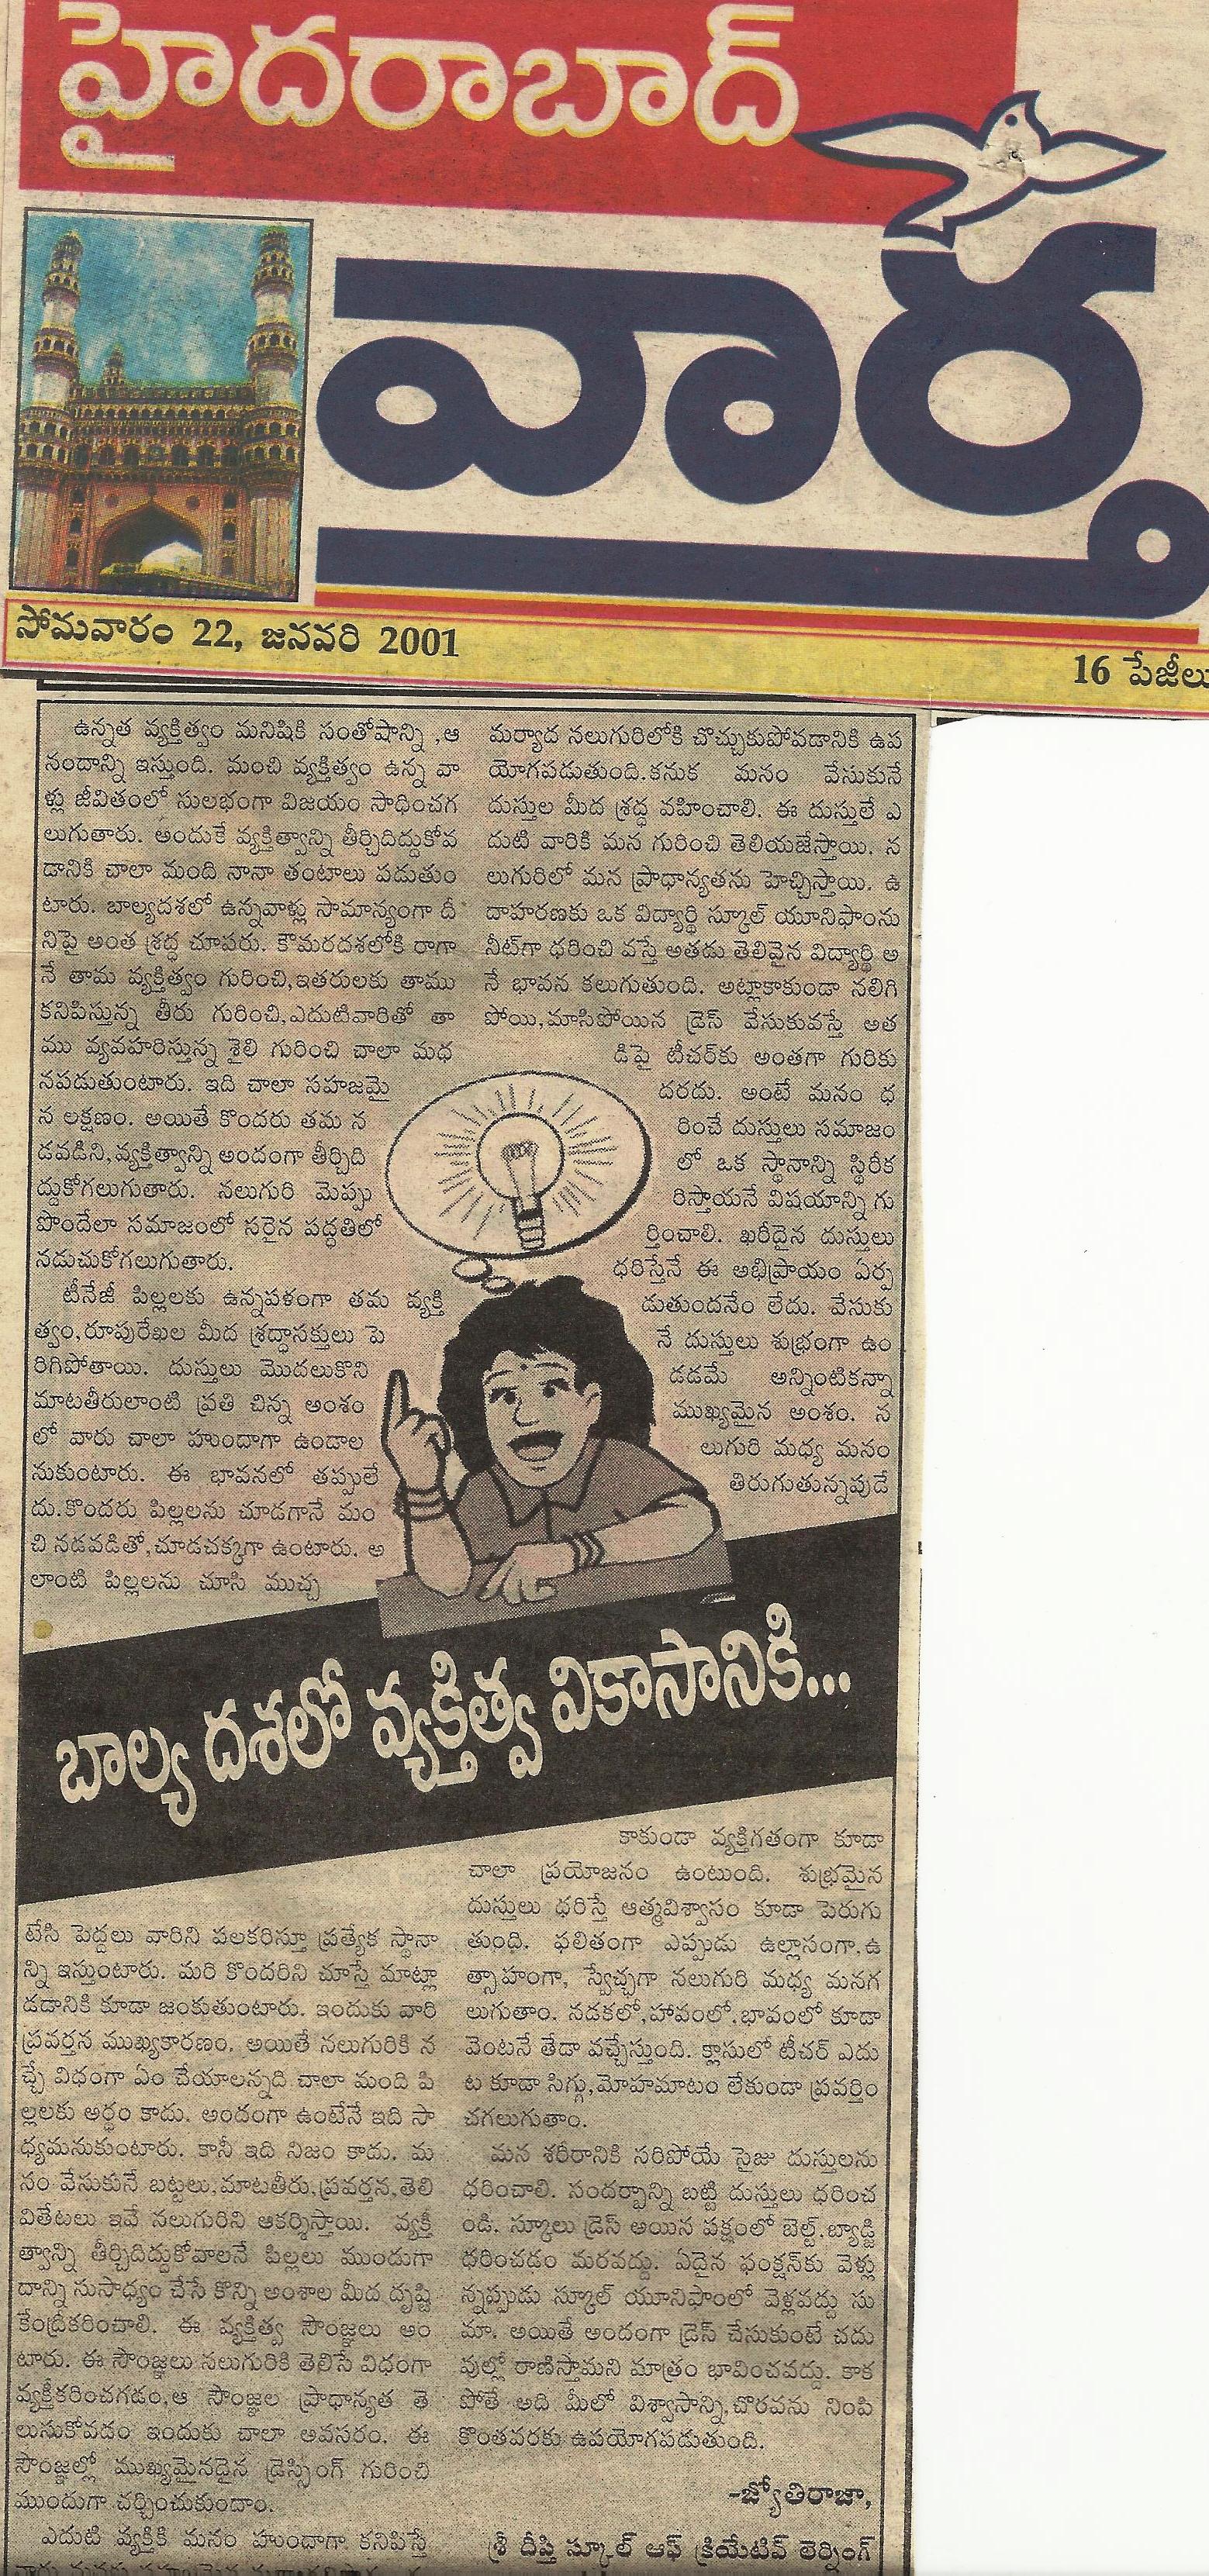 హైదరాబాద్
వార్త
సోమవారం 22, జనవరి 2001
16 పేజీలు
ఉన్నత వ్యక్తిత్వం మనిషికి సంతోషాన్ని ,ఆ
నందాన్ని ఇస్తుంది. మంచి వ్యక్తిత్వం ఉన్న వా
ళ్లు జీవితంలో సులభంగా విజయం సాధించగ
లుగుతారు. అందుకే వ్యక్తిత్వాన్ని తీర్చిదిద్దుకోవ
డానికి చాలా మంది నానా తంటాలు పడుతుం
టారు. బాల్యదశలో ఉన్నవాళ్లు సామాన్యంగా దీ
నిపై అంత శ్రద్ధ చూపరు. కౌమరదశలోకి రాగా
నే తామ వ్యక్తిత్వం గురించి,ఇతరులకు తాము
కనిపిస్తున్న తీరు గురించి,ఎదుటివారితో తా
ము వ్యవహరిస్తున్న శైలి గురించి చాలా మధ
నపడుతుంటారు. ఇది చాలా సహజమై
న లక్షణం. అయితే కొందరు తమ న
డవడిని,వ్యక్తిత్వాన్ని అందంగా తీర్చిది
ద్దుకోగలుగుతారు. నలుగురి మెప్పు
పొందేలా సమాజంలో సరైన పద్ధతిలో
నడుచుకోగలుగుతారు.
టీనేజీ పిల్లలకు ఉన్నపళంగా తమ వ్యక్తి
త్వం,రూపురేఖల మీద శ్రద్ధాసక్తులు పె
రిగిపోతాయి. దుస్తులు మొదలుకొని
మాటతీరులాంటి ప్రతి చిన్న అంశం
లో వారు చాలా హుందాగా ఉండాల
నుకుంటారు. ఈ భావనలో తప్పులే
దు.కొందరు పిల్లలను చూడగానే మం
చి నడవడితో,చూడచక్కగా ఉంటారు. అ
లాంటి పిల్లలను చూసి ముచ్చ
బాల్య దశలో వ్యక్తిత్వ వికాసానికి...
టేసి పెద్దలు వారిని పలకరిస్తూ ప్రత్యేక స్థానా
న్ని ఇస్తుంటారు. మరి కొందరిని చూస్తే మాట్లా
డడానికి కూడా జంకుతుంటారు. ఇందుకు వారి
ప్రవర్తన ముఖ్యకారణం. అయితే నలుగురికి న
చ్చే విధంగా ఏం చేయాలన్నది చాలా మంది పి
ల్లలకు అర్థం కాదు. అందంగా ఉంటేనే ఇది సా
ధ్యమనుకుంటారు. కానీ ఇది నిజం కాదు. మ
నం వేసుకునే బట్టలు,మాటతీరు,ప్రవర్తన,తెలి
వితేటలు ఇవే నలుగురిని ఆకర్శిస్తాయి. వ్యక్తి
త్వాన్ని తీర్చిదిద్దుకోవాలనే పిల్లలు ముందుగా
దాన్ని సుసాధ్యం చేసే కొన్ని అంశాల మీద దృష్టి
కేంద్రీకరించాలి. ఈ వ్యక్తిత్వ సౌంజ్ఞలు అం
టారు. ఈ సౌంజ్ఞలు నలుగురికి తెలిసే విధంగా
వ్యక్తీకరించగడం,ఆ సౌంజ్ఞల ప్రాధాన్యత తె
లుసుకోవడం ఇందుకు చాలా అవసరం. ఈ
సౌంజ్ఞల్లో ముఖ్యమైనదైన డ్రెస్సింగ్ గురించి
ముందుగా చర్చించుకుందాం.
ఎదుటి వ్యక్తికి మనం హుందాగా కనిపిస్తే
మర్యాద నలుగురిలోకి చొచ్చుకుపోవడానికి ఉప
యోగపడుతుంది.కనుక మనం వేసుకునే
దుస్తుల మీద శ్రద్ధ వహించాలి. ఈ దుస్తులే ఎ
దుటి వారికి మన గురించి తెలియజేస్తాయి. న
లుగురిలో మన ప్రాధాన్యతను హెచ్చిస్తాయి. ఉ
దాహరణకు ఒక విద్యార్థి స్కూల్ యూనిఫాంను
నీట్‌గా ధరించి వస్తే అతడు తెలివైన విద్యార్థి అ
నే భావన కలుగుతుంది. అట్లాకాకుండా నలిగి
పోయి,మాసిపోయిన డ్రెస్ వేసుకువస్తే అత
డిపై టీచర్‌కు అంతగా గురికు
దరదు. అంటే మనం ధ
రించే దుస్తులు సమాజం
లో ఒక స్థానాన్ని స్థిరీక
రిస్తాయనే విషయాన్ని గు
ర్తించాలి. ఖరీదైన దుస్తులు
ధరిస్తేనే ఈ అభిప్రాయం ఏర్ప
డుతుందనేం లేదు. వేసుకు
నే దుస్తులు శుభ్రంగా ఉం
డడమే అన్నింటికన్నా
ముఖ్యమైన అంశం. న
లుగురి మధ్య మనం
తిరుగుతున్నవుడే
కాకుండా వ్యక్తిగతంగా కూడా
చాలా ప్రయోజనం ఉంటుంది. శుభ్రమైన
దుస్తులు ధరిస్తే ఆత్మవిశ్వాసం కూడా పెరుగు
తుంది. ఫలితంగా ఎప్పుడు ఉల్లాసంగా,ఉ
త్సాహంగా, స్వేచ్ఛగా నలుగురి మధ్య మనగ
లుగుతాం. నడకలో,హావంలో,భావంలో కూడా
వెంటనే తేడా వచ్చేస్తుంది. క్లాసులో టీచర్ ఎదు
ట కూడా సిగ్గు,మోహమాటం లేకుండా ప్రవర్తిం
చగలుగుతాం.
మన శరీరానికి సరిపోయే సైజు దుస్తులను
ధరించాలి. సందర్భాన్ని బట్టి దుస్తులు ధరించ
ండి. స్కూలు డ్రెస్ అయిన పక్షంలో బెల్ట్,బ్యాడ్జి
ధరించడం మరవద్దు. ఏదైన ఫంక్షన్‌కు వెళ్లు
న్నప్పుడు స్కూల్ యూనిఫాంలో వెళ్లవద్దు సు
మా. అయితే అందంగా డ్రెస్ చేసుకుంటే చదు
వుల్లో రాణిస్తామని మాత్రం భావించవద్దు. కాక
పోతే అది మీలో విశ్వాసాన్ని,చొరవను నింపి
కొంతవరకు ఉపయోగపడుతుంది.
-జ్యోతిరాజా,
శ్రీ దీప్తి స్కూల్ ఆఫ్ క్రియేటివ్ లెర్నింగ్